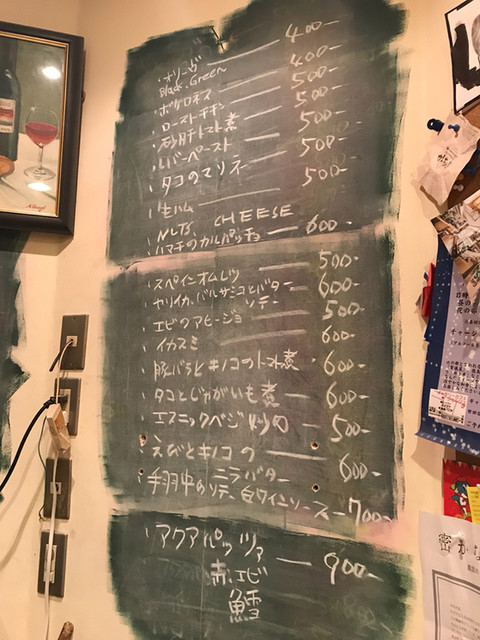 ・オリーブ — 400-
Black.Green 400-
・ボケロネス — 500-
・ローストチキン — 500-
・砂肝トマト煮
・レバーペースト — 500-
・タコのマリネ — 500-
・生ハム
・NUTS. CHEESE
・ハマチのカルパッチョ — 600-
・スペインオムレツ — 500-
・ヤリイカ、バルサミコとバター 600-
ソテー
・エビのアヒージョ 500-
・イカスミ — 600-
・豚バラとキノコのトマト煮 - 600-
・タコとじゃがいも煮 — 600-
・エスニックベジ炒め — 500-
・えびとキノコの
ニラバター 600-
・手羽中のソテー 白ワインソース - 700-
・アクアパッツァ — 900-
赤エビ
鱈
日時
チャージ
密かな